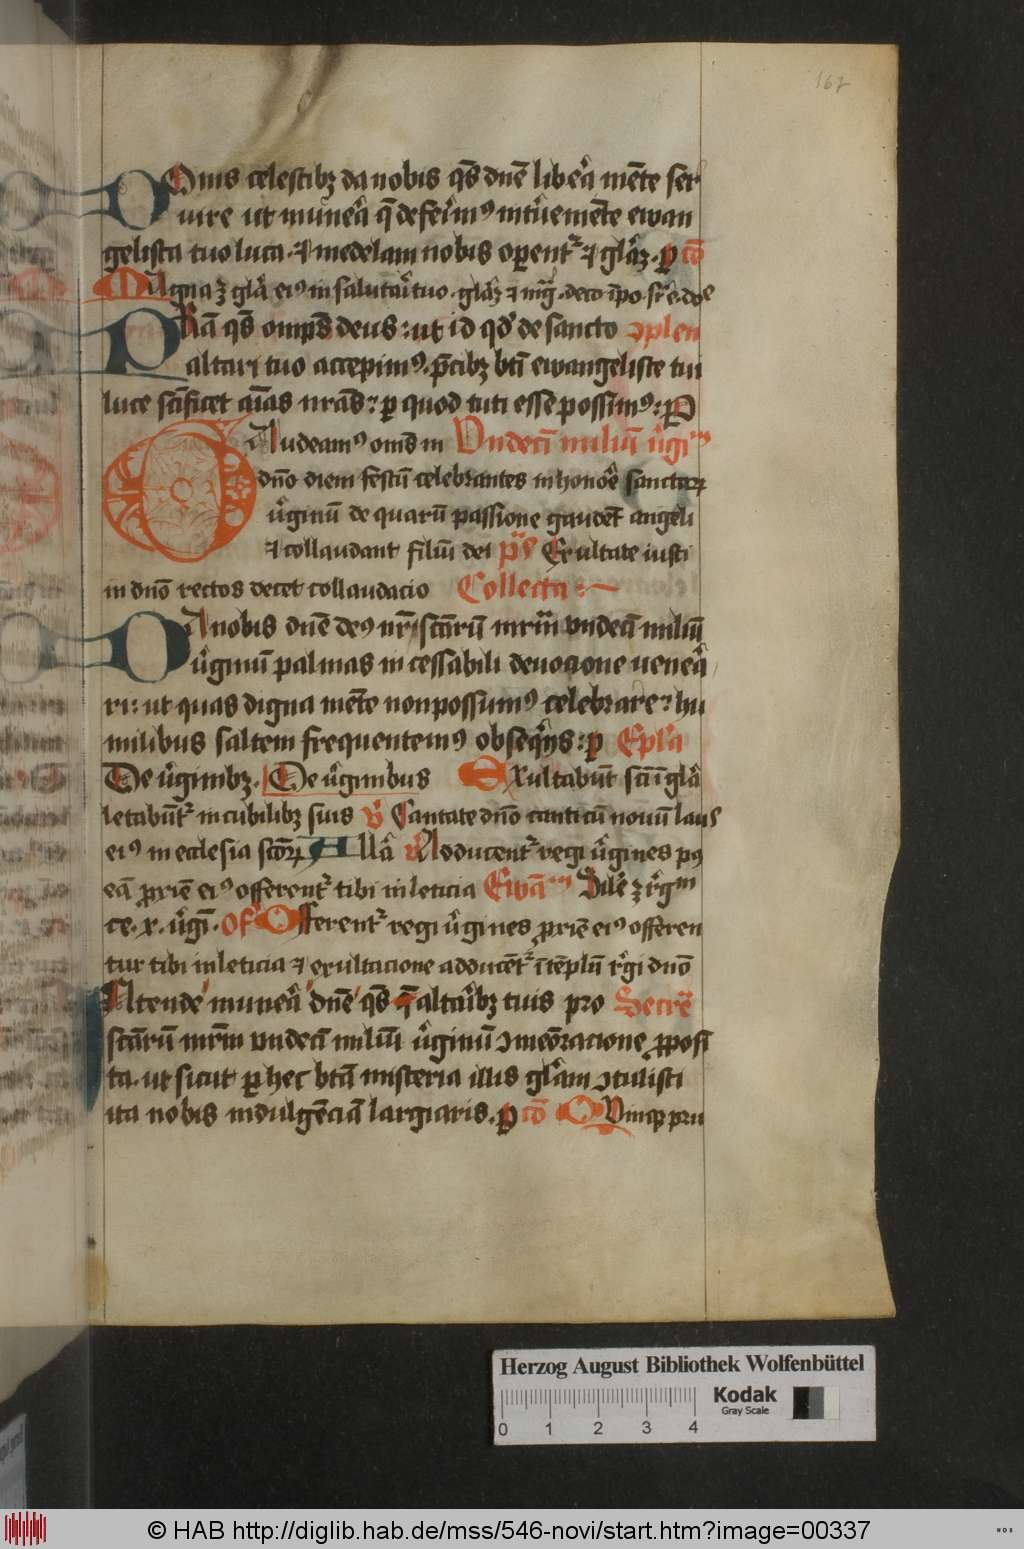 167
DOnis celestibꝫ da nobis qs̄ dnē liba mēte ser
uire ut munea q̄ deferimꝰ intueniēte ewan
gelista tuo luca ⁊ medelam nobis opentᷣ ⁊ gl̄aꝫ ꝑ cō
Magna ꝫ gl̄a eiꝰ in salutari tuo gl̄aꝫ ⁊
PRā qs̄ omps̄ deus ut id qd̄ de sancto ↄplen
altari tuo accepimꝰ p̄cibꝫ bti ewangeliste tui
luce sc̄ificet aīas nr̄as ⁊ ꝑ quod tuti esse possimꝰ P
GAudeamꝰ oms̄ in Undecī miliū v̓giᵐ
dn̄o diem festū celebrantes in honoē sanctaꝝ
v̓ginū de quarū passione gaudēt angeli
⁊ collaudant filiū dei p̄s Exultate iusti
in dn̄o rectos decet collaudacio Collecta
DA nobis dn̄e deꝰ nr̄ sc̄arū mr̄m̄ vndecī miliū
v̓ginū palmas incessabili deuocione uenea
ri ut quas digna mēte non possumꝰ celebrare ⁊ hu
milibus saltem frequentemꝰ obseqͥs ꝑ Epl̄a
De v̓ginibꝫ De v̓ginibus Exultabūt sc̄i ī gl̄a
letabūtᷣ in cubilibꝫ suis V̓ Cantate dn̄o canticū nouū laus
eiꝰ in ecclesia sc̄oꝝ All̄a V̓ Adducentᷣ regi v̓gines pꝰ
eā ꝓxīe eiꝰ offerentᷣ tibi in leticia Ewāᵐ Sīle ē rᵉgᵐ
ce x v̓gī Of̄ Offerentᷣ regi v̓gines ꝓxīe eiꝰ offeren
tur tibi in leticia ⁊ exultacione adducētᷣ ī tēplū rᵉgi dn̄o
INtende munea dn̄e qs̄ q̄ altaibꝫ tuis pro Secre
sc̄arū mr̄m vndecī miliū v̓ginū ↄmeōracione ꝓposi
ta ut sicut ꝑ hec bt̄a misteria illis gl̄am ↄtulisti
ita nobis indulgēciā largiaris ꝑ cō QUinqꝫ pru
Herzog August Bibliothek Wolfenbüttel
0 1 2 3 4
Kodak
Gray Scale
© HAB http://diglib.hab.de/mss/546-novi/start.htm?image=00337